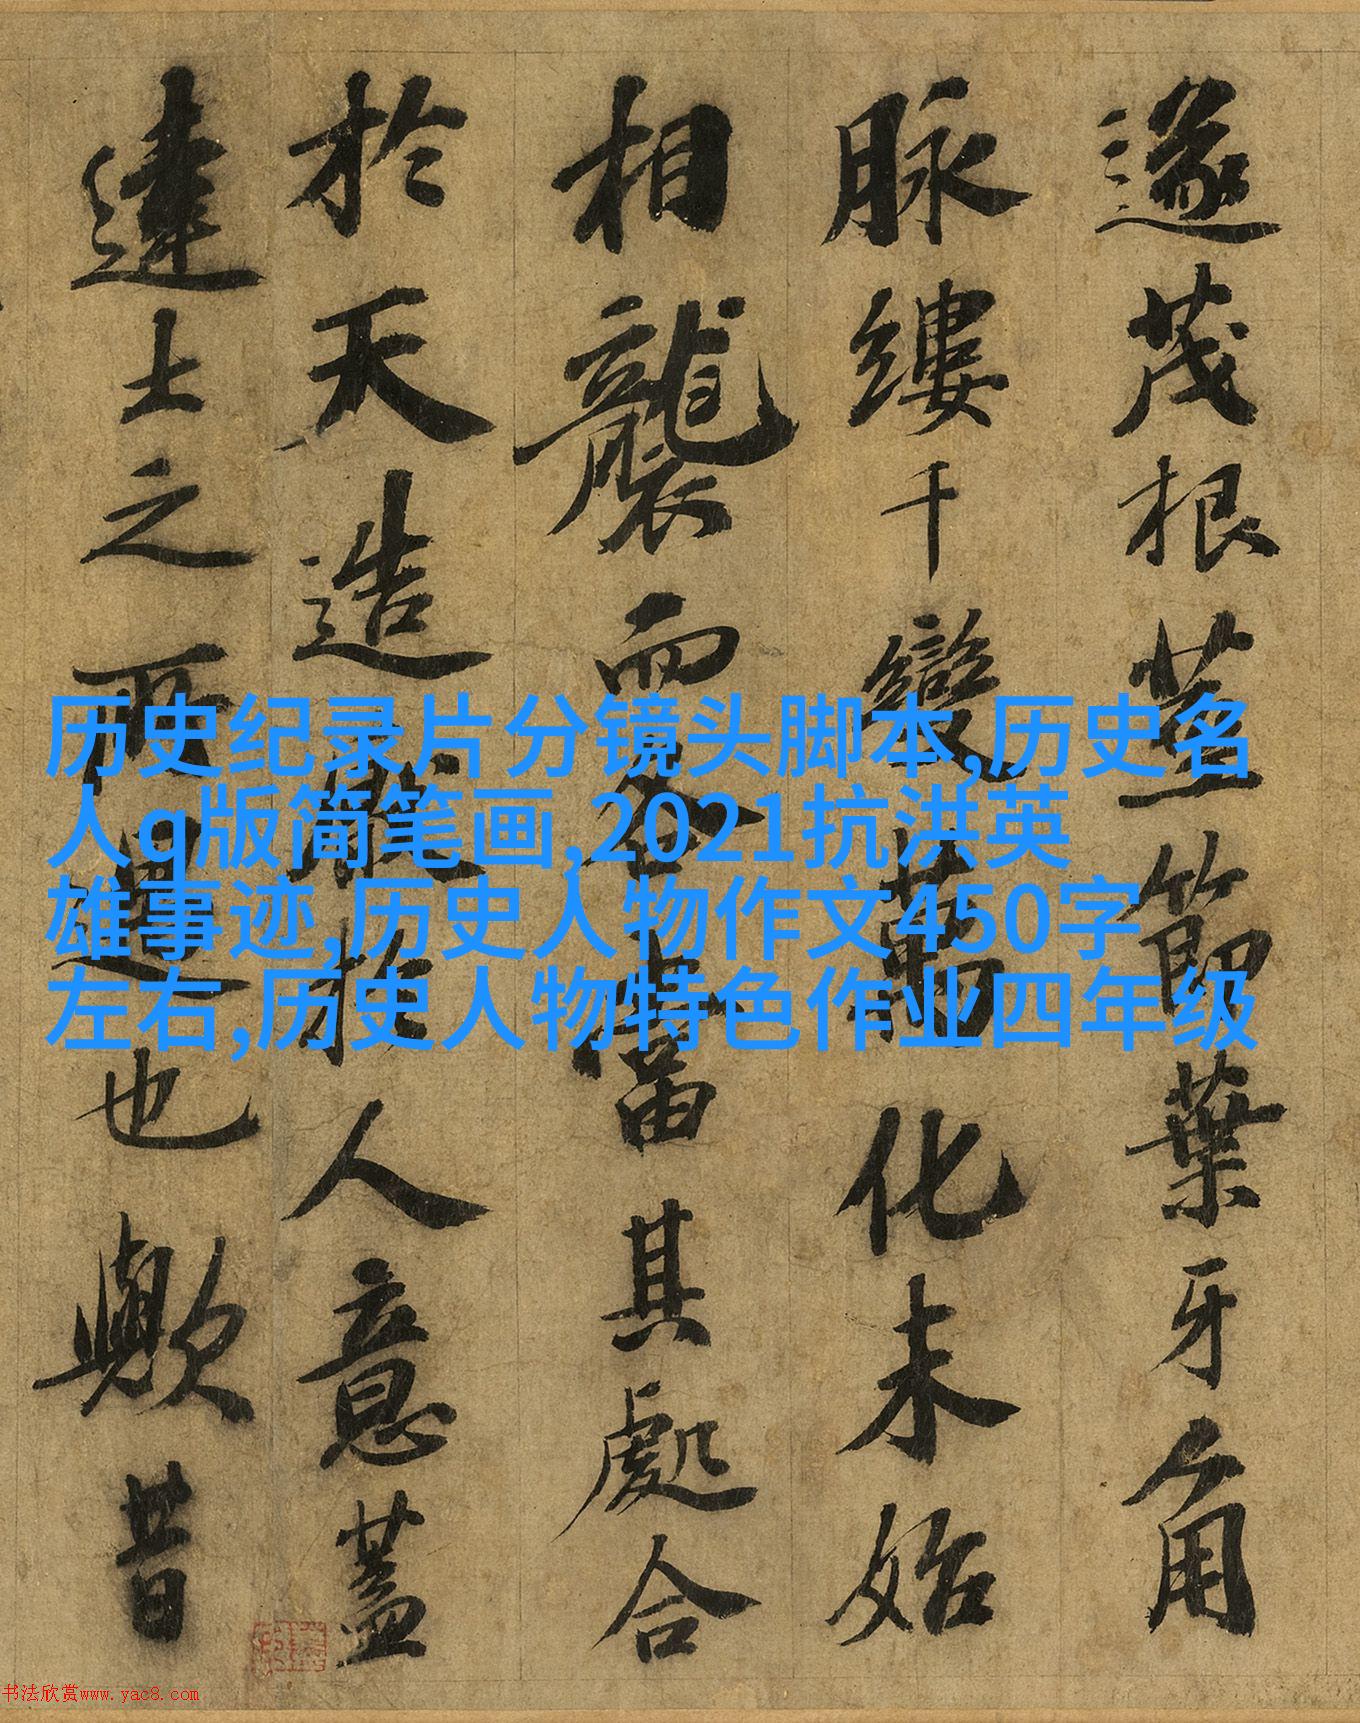 遂茂根莖節葉牙角
脉縷千變萬化未始
相襲而各當其處合
於天造於人意蓋
達士之所遇也歟昔
历史纪录片分镜头脚本,历史名
人q版简笔画,2021抗洪英
雄事迹,历史人物作文450字
左右,历史人物特色作业四年级
书法欣赏www.yac8.com